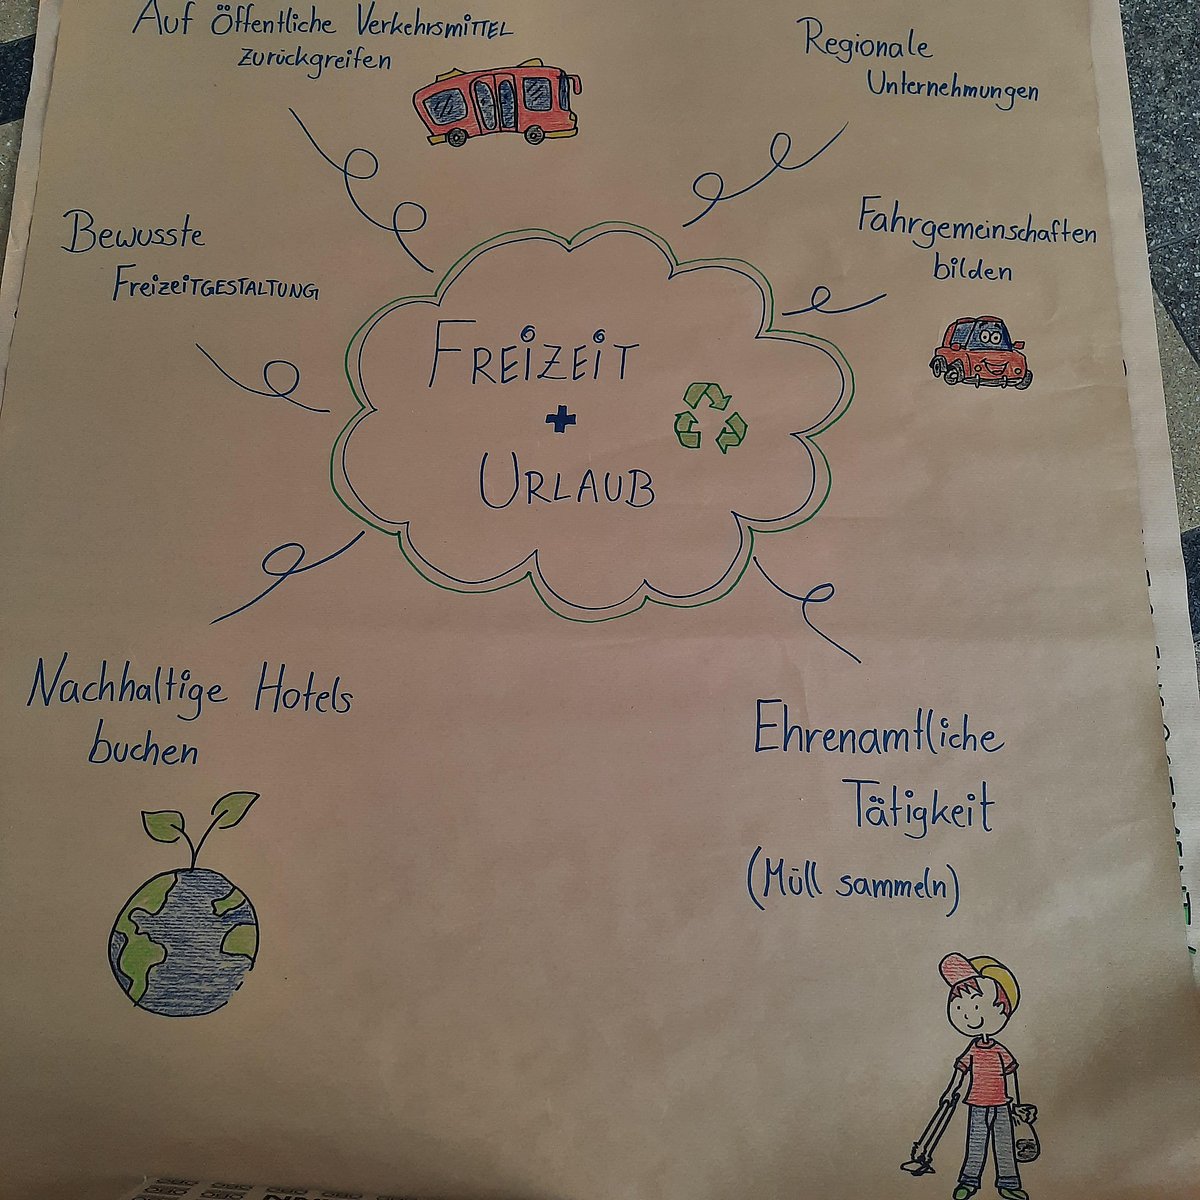 Auf öffentliche Verkehrsmittel
zurückgreifen
Regionale
Unternehmungen
Bewusste
Freizeitgestaltung
Fahrgemeinschaften
bilden
Freizeit
+
Urlaub
Nachhaltige Hotels
buchen
Ehrenamtliche
Tätigkeit
(Müll sammeln)